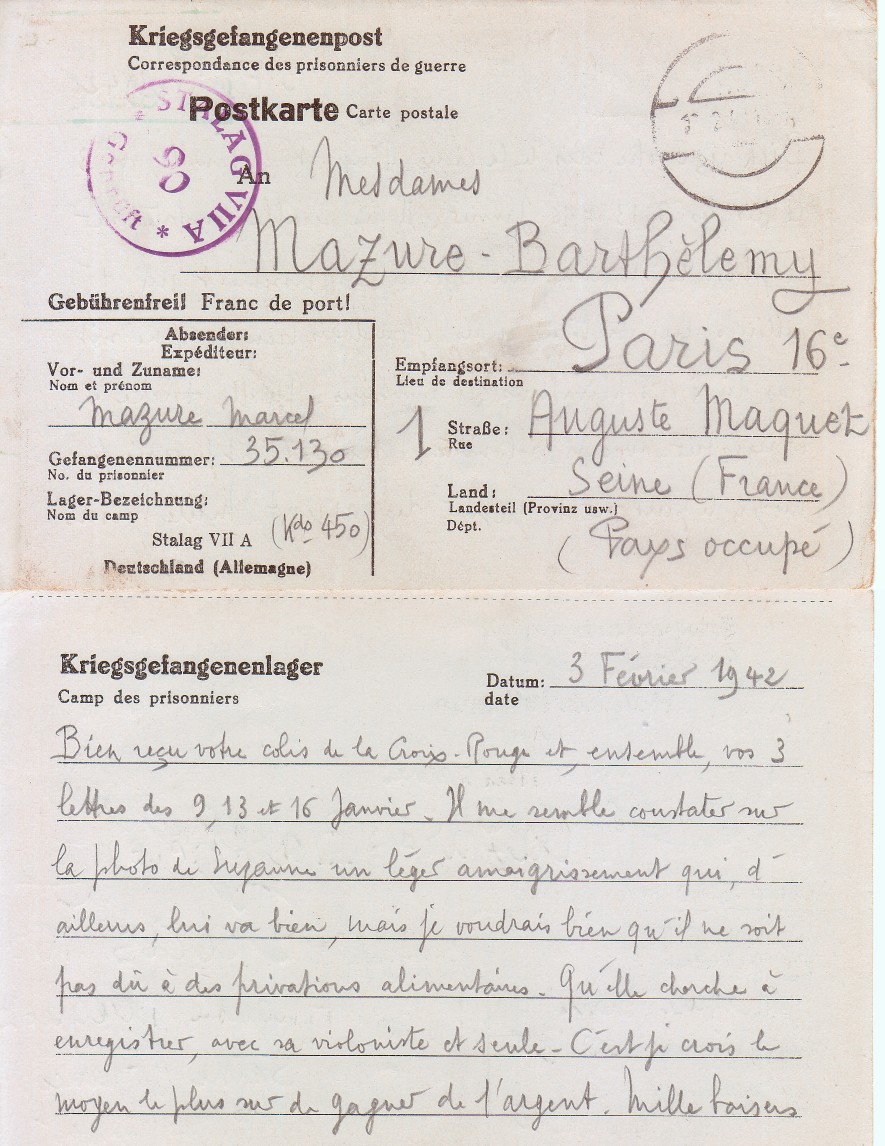 Kriegsgefangenenpost
Correspondance des prisonniers de guerre
Postkarte Carte postale
STALAG VII A * Geprüft *
90
An Mesdames
Mazure-Barthèlemy
Gebührenfrei! Franc de port!
Absender:
Expéditeur:
Vor- und Zuname:
Nom et prénom
Mazure Marcel
Gefangenennummer: 35.130
No. du prisonnier
Lager-Bezeichnung:
Nom du camp
Stalag VII A (Kdo 450)
Deutschland (Allemagne)
Paris 16e
Empfangsort:
Lieu de destination
1 Straße: Auguste Maquet
Rue
Land: Seine (France)
Landesteil (Provinz usw.)
Dépt.
(Pays occupé)
Kriegsgefangenenlager
Camp des prisonniers
Datum: 3 Février 1942
date
Bien reçu votre colis de la Croix-Rouge et, ensemble, vos 3
lettres des 9, 13 et 16 Janvier. Il me semble constater sur
la photo de Suzanne un léger amaigrissement qui, d'
ailleurs, lui va bien, mais je voudrais bien qu'il ne soit
pas dû à des privations alimentaires. Qu'elle cherche à
enregistrer, avec sa violoniste et seule - C'est je crois le
moyen le plus sur de gagner de l'argent. Mille baisers